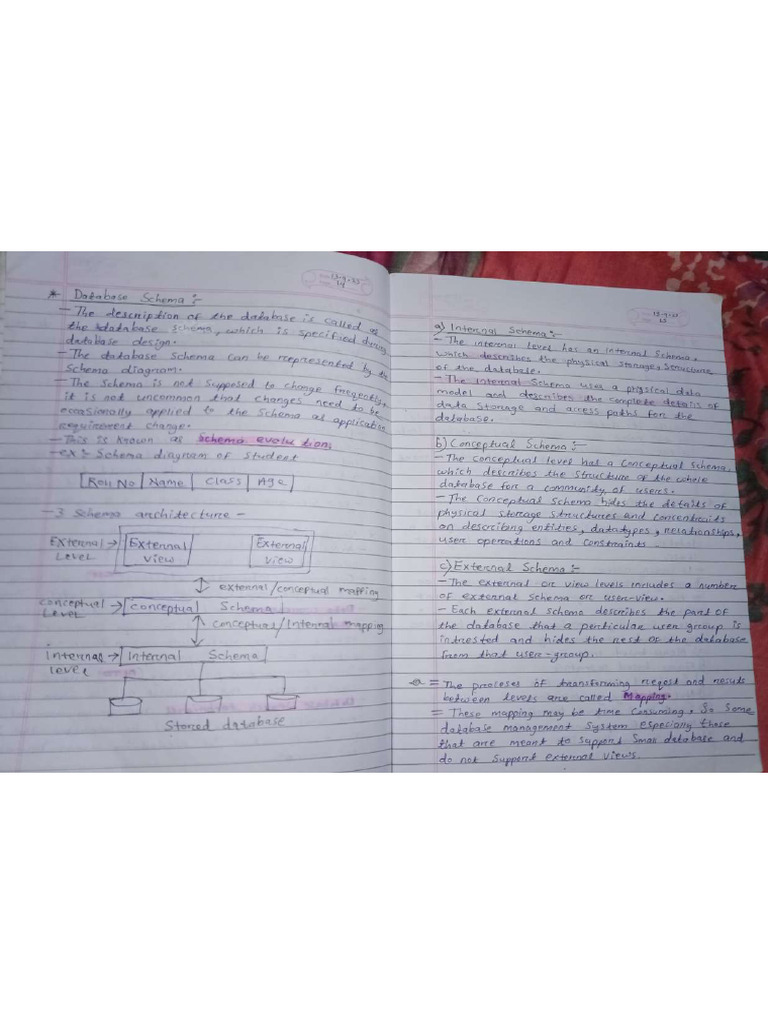 * Database Schema :-
- The description of the database is called is
the database schema, which is specified during
database design.
- The database schema can be represented by the
Schema diagram.
- The Schema is not supposed to change frequently,
it is not uncommon that changes need to be
occasionally applied to the schema as application
requirement change.
- This is known as Schema evolution.
- ex :- Schema diagram of student
Roll No Name Class Age
- 3 Schema architecture -
External Level → External view External view
external/conceptual mapping
Conceptual Level → Conceptual Schema
Conceptual/Internal mapping
Internal level → Internal Schema
Stored database
a) Internal Schema :-
- The internal level has an internal schema,
which describes the physical storage structure
of the database.
- The Internal Schema uses a physical data
model and describes the complete details of
data storage and access paths for the
database.
b) Conceptual Schema :-
- The conceptual level has a conceptual schema,
which describes the structure of the whole
database for a community of users.
- The conceptual schema hides the details of
physical storage structures and
on describing entities, datatypes, relationships,
user operations and constraints.
c) External Schema :-
- The external or view levels includes a number
of external schema or user-view.
- Each external schema describes the part of
the database that a perticular user group is
intrested and hides the rest of the database
from that user-group.
= The proceses of transforming reqest and results
between levels are called Mapping.
= These mapping may be time consuming, So some
database management system especially those
that are meant to support small database and
do not support external views.